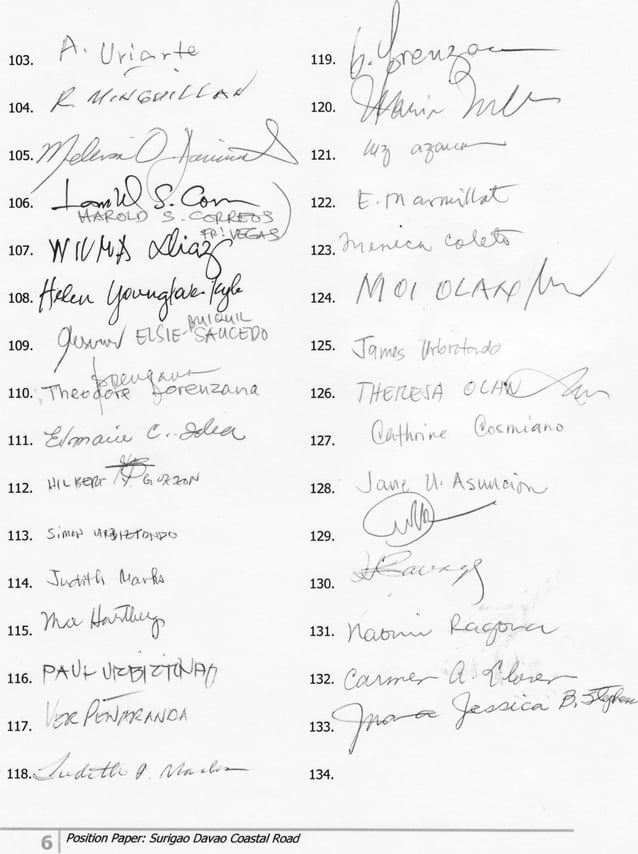 103. A. Uriarte
104. R. MINGUILLAN
105. Melissa O.
106. S. Corr
HAROLD S. CORREOS
FR: VEGAS
107. WILMA Diaz
108. Helen Youngtak-Kyle
109. ELSIE SAUCEDO
110. Theodore Lorenzana
111. C.
112. HILBERT GUZZON
113. Simon URBIZTONDO
114. Judith Marks
115. Hartberg
116. PAUL URBIZTONDO
117. VER PEÑARANDA
118. Judith
119. G. Lorenzana
120. Maria
121. Luz
122. E. Marmillat
123. Menica Coleto
124. MOI OLAN
125. James Urbiztondo
126. THERESA OLAN
127. Cathrine Cosmiano
128. Jane U. Asuncion
129.
130.
131. Naomi Ragova
132. Carmen A.
133. Jessica B. Stephens
134.
6 Position Paper: Surigao Davao Coastal Road